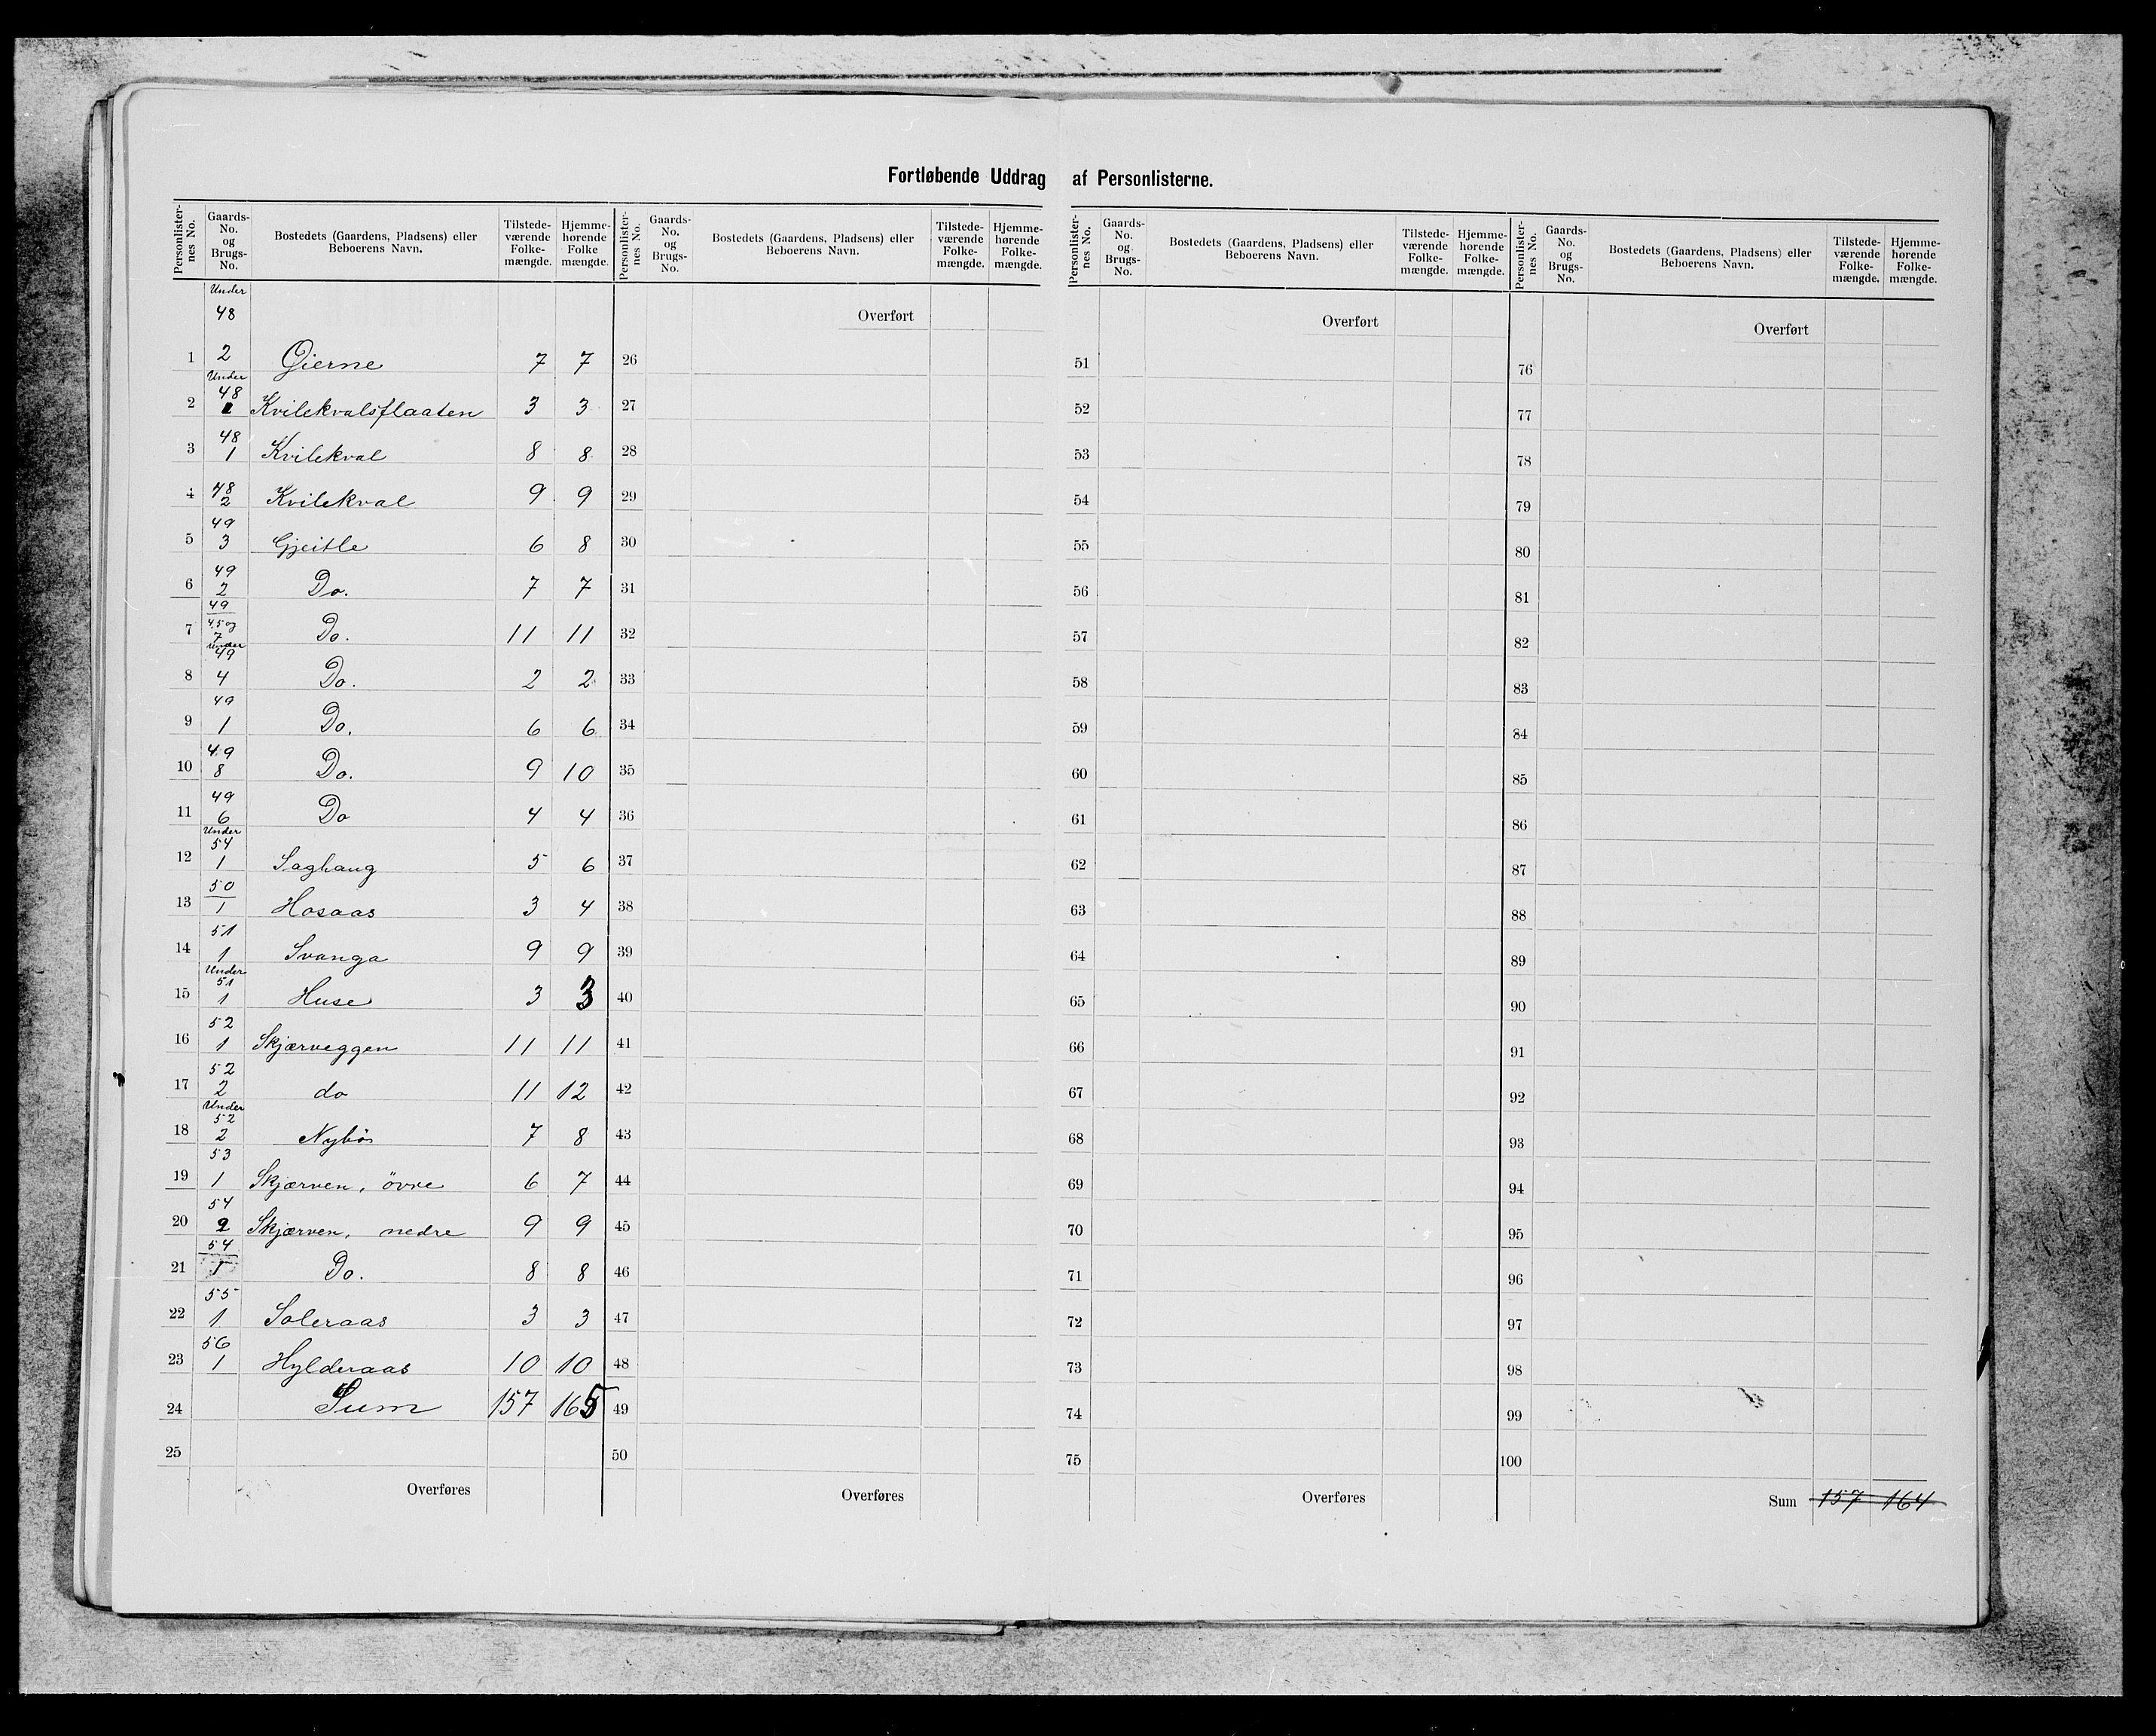 Fortløbende Uddrag af Personlisterne.
Personlister-nes No. Gaards-No. og Brugs-No. Bostedets (Gaardens, Pladsens) eller Beboerens Navn. Tilstede-værende Folke-mængde. Hjemme-hørende Folke mængde. Personlister-nes No. Gaards-No. og Brugs-No. Bostedets (Gaardens, Pladsens) eller Beboerens Navn. Tilstede-værende Folke-mængde. Hjemme-hørende Folke-mængde. Personlister-nes No. Gaards-No. og Brugs-No. Bostedets (Gaardens, Pladsens) eller Beboerens Navn. Tilstede-værende Folke-mængde. Hjemme-hørende Folke-mængde. Personlister-nes No. Gaards-No. og Brugs-No. Bostedets (Gaardens, Pladsens) eller Beboerens Navn. Tilstede-værende Folke-mængde. Hjemme-hørende Folke-mængde.
Under
48 Overført Overført Overført
1 2 Gierne 7 7 26 51 76
Under
48
2 1 Kvilekvalsflaaten 3 3 27 52 77
48
3 1 Kvilekval 8 8 28 53 78
48
4 2 Kvilekval 9 9 29 54 79
49
5 3 Gjeitle 6 8 30 55 80
49
6 2 Do. 7 7 31 56 81
49
4,5 og
7 7 Do. 11 11 32 57 82
Under
49
8 4 Do. 2 2 33 58 83
49
9 1 Do. 6 6 34 59 84
49
10 8 Do. 9 10 35 60 85
49
11 6 Do 4 4 36 61 86
Under
54
12 1 Saghaug 5 6 37 62 87
50
13 1 Hosaas 3 4 38 63 88
51
14 1 Svanga 9 9 39 64 89
Under
51
15 1 Huse 3 3 40 65 90
52
16 1 Skjærveggen 11 11 41 66 91
52
17 2 do 11 12 42 67 92
Under
52
18 2 Nybö 7 8 43 68 93
53
19 1 Skjærven, övre 6 7 44 69 94
54
20 2 Skjærven, nedre 9 9 45 70 95
54
21 1 Do. 8 8 46 71 96
55
22 1 Soleraas 3 3 47 72 97
56
23 1 Hylderaas 10 10 48 73 98
24 Sum 157 165 49 74 99
25 50 75 100
Overføres Overføres Overføres Sum 157 164